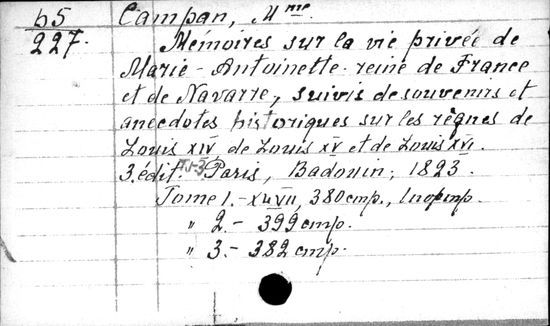 65 Campan, Mme.
227. Mémoires sur la vie privée de
Marie-Antoinette reine de France
et de Navarre, suivis de souvenirs et
anecdotes historiques sur les règnes de
Louis XIV de Louis XV et de Louis XVI.
3. édit. T.1-3. Paris, Badouin, 1823.
Tome 1.- XLVII, 380 стр., 1 портр.
" 2.- 399 стр.
" 3.- 382 стр.